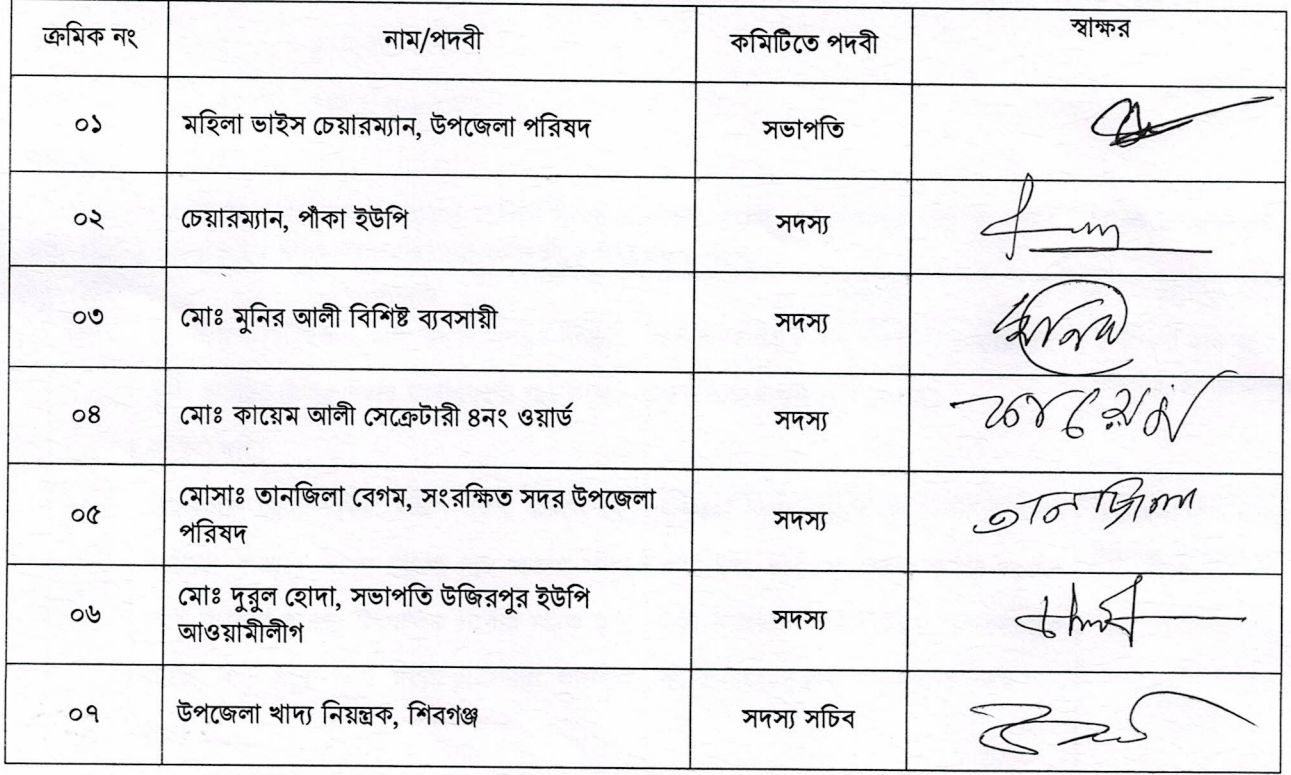 ক্রমিক নং নাম/পদবী কমিটিতে পদবী স্বাক্ষর
০১ মহিলা ভাইস চেয়ারম্যান, উপজেলা পরিষদ সভাপতি
০২ চেয়ারম্যান, পাঁকা ইউপি সদস্য
০৩ মোঃ মুনির আলী বিশিষ্ট ব্যবসায়ী সদস্য মনির
০৪ মোঃ কায়েম আলী সেক্রেটারী ৪নং ওয়ার্ড সদস্য কায়েম
০৫ মোসাঃ তানজিলা বেগম, সংরক্ষিত সদর উপজেলা
পরিষদ সদস্য তানজিলা
০৬ মোঃ দুরুল হোদা, সভাপতি উজিরপুর ইউপি
আওয়ামীলীগ সদস্য
০৭ উপজেলা খাদ্য নিয়ন্ত্রক, শিবগঞ্জ সদস্য সচিব